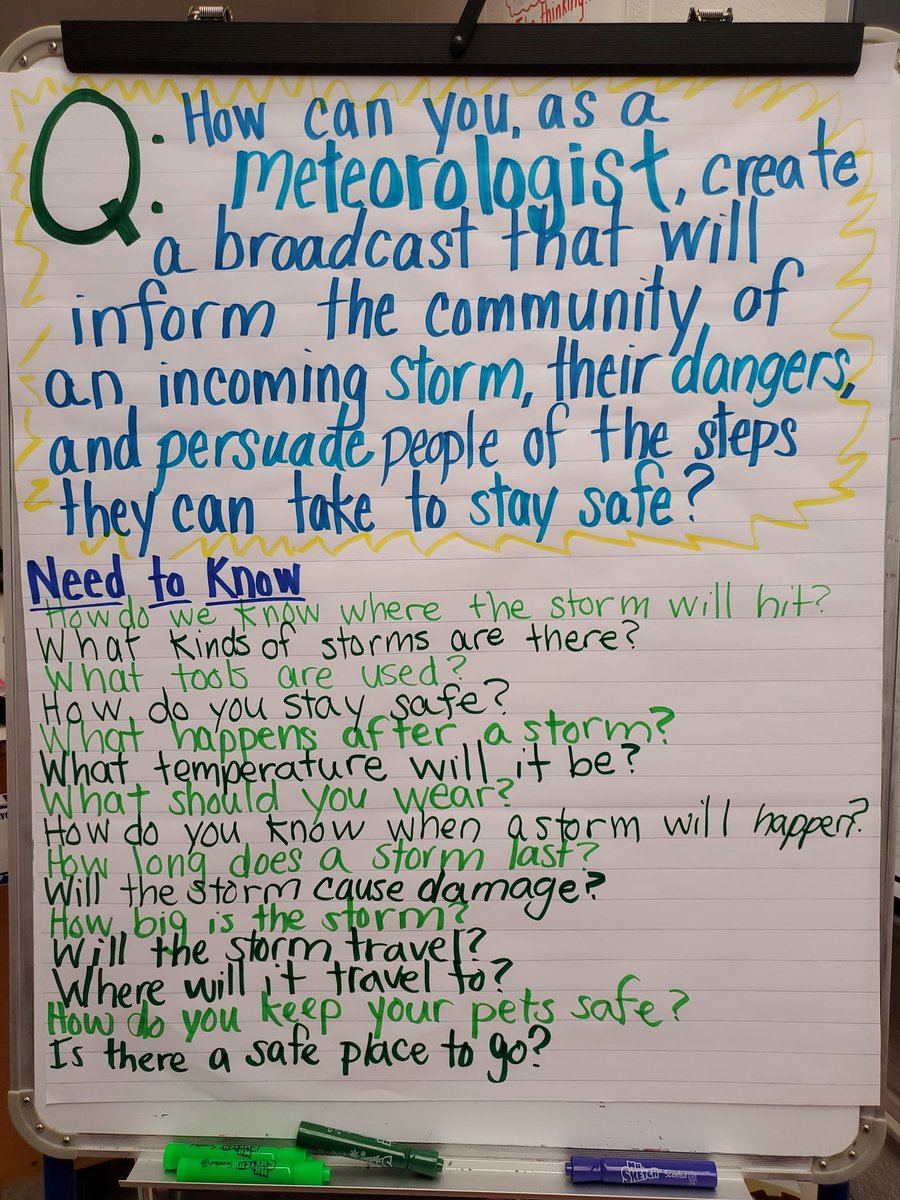 thinking...
Q: How can you, as a
meteorologist, create
a broadcast that will
inform the community of
an incoming storm, their dangers,
and persuade people of the steps
they can take to stay safe?
Need to Know
How do we know where the storm will hit?
What kinds of storms are there?
What tools are used?
How do you stay safe?
What happens after a storm?
What temperature will it be?
What should you wear?
How do you know when a storm will happen?
How long does a storm last?
Will the storm cause damage?
How big is the storm?
Will the storm travel?
Where will it travel to?
How do you keep your pets safe?
Is there a safe place to go?
MR SKETCH Scented